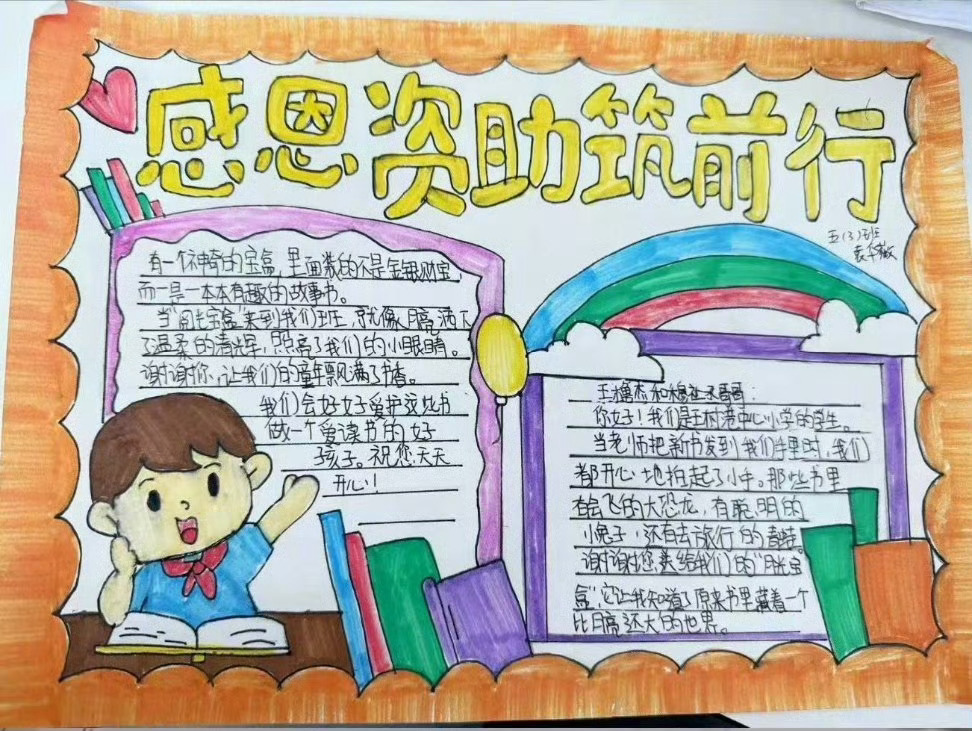 感恩资助筑前行
五(3)班
袁华敏
有一个神奇的宝盒,里面装的不是金银财宝,
而是一本本有趣的故事书。
当"阅光宝盒"来到我们班,就像月亮洒下
了温柔的清光,照亮了我们的小眼睛。
谢谢你,让我们的童年飘满了书香。
我们会好好爱护这些书
做一个爱读书的好
孩子。祝您天天
开心!
王 杰和 哥哥:
你好!我们是王村港中心小学的学生。
当老师把新书发到我们手里时,我们
都开心地拍起了小手。那些书里
有会飞的大恐龙,有聪明的
小兔子,还有去旅行的青蛙。
谢谢您送给我们的"月光宝
盒",它让我知道了原来书里藏着一个
比月亮还大的世界。